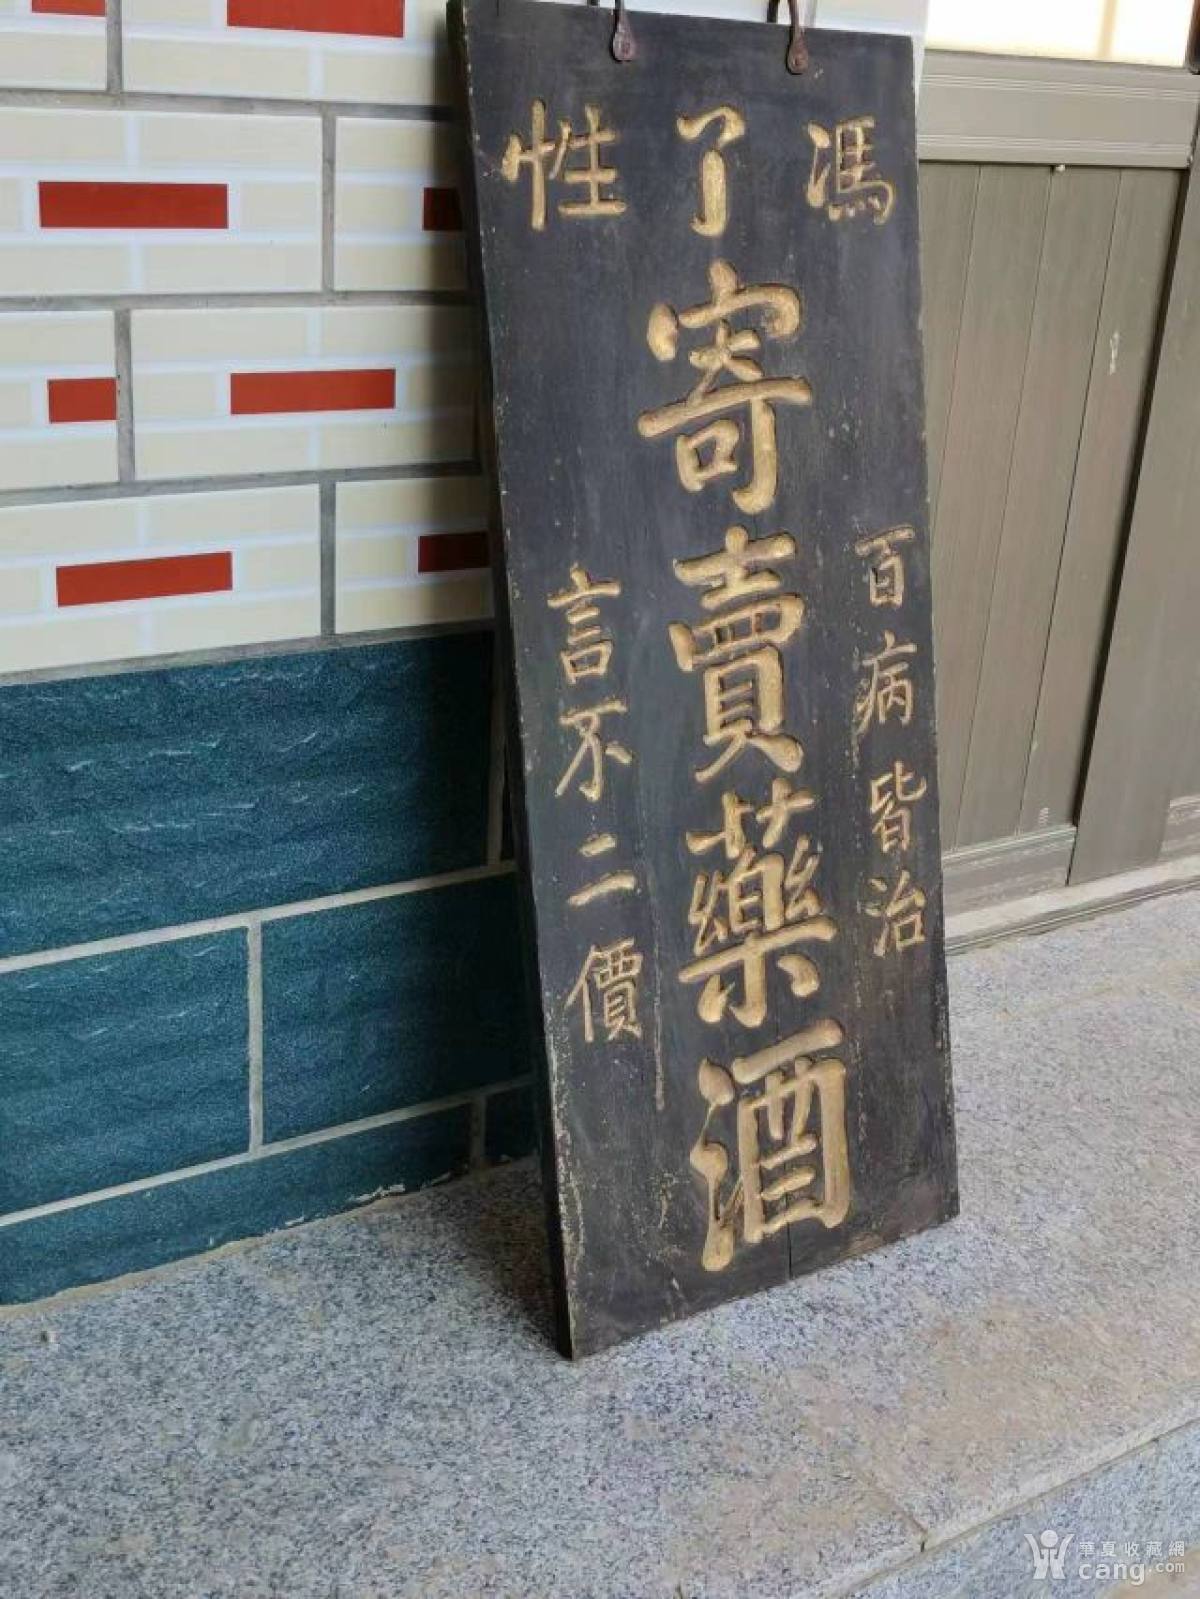 馮了性
寄賣藥酒
百病皆治
言不二價
華夏收藏網
cang.com